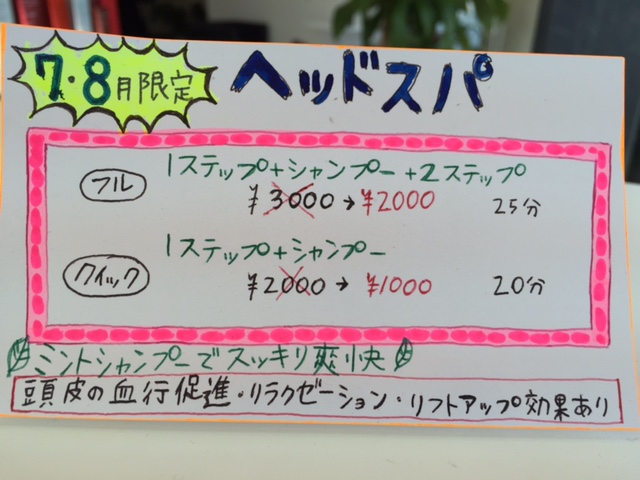 7・8月限定
ヘッドスパ
フル
1ステップ+シャンプー+2ステップ
¥3000→¥2000 25分
クイック
1ステップ+シャンプー
¥2000→¥1000 20分
ミントシャンプーでスッキリ爽快
頭皮の血行促進・リラクゼーション・リフトアップ効果あり